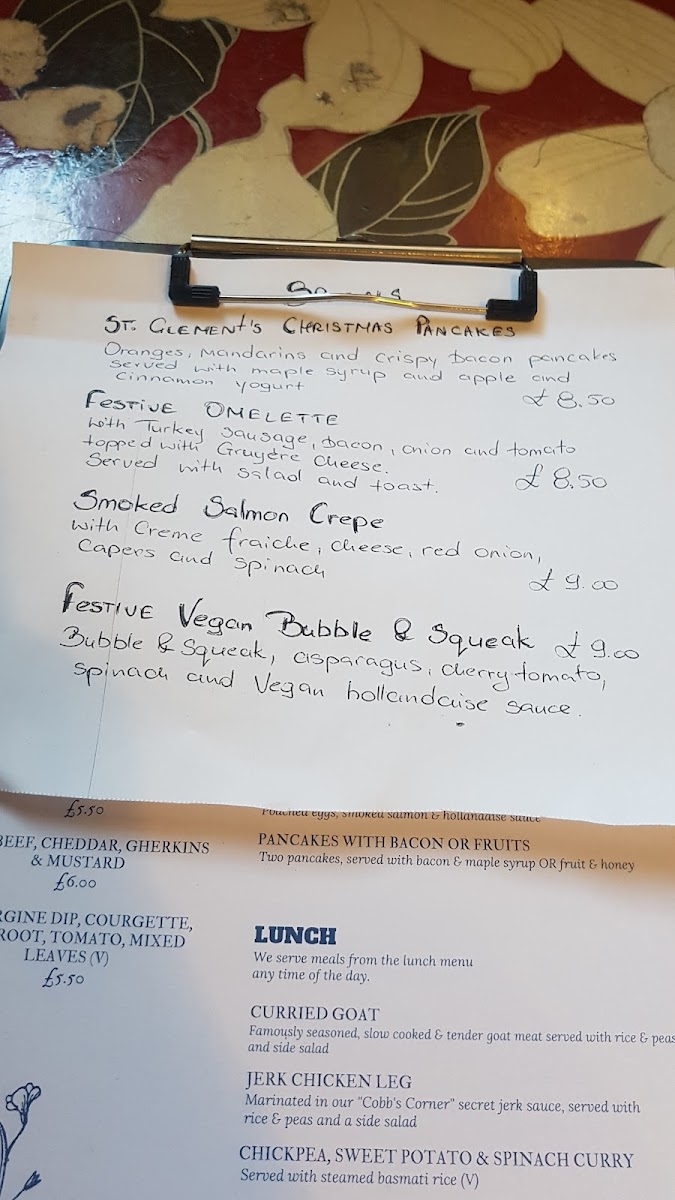 ST. CLEMENT'S CHRISTMAS PANCAKES
Oranges, Mandarins and crispy bacon pancakes
served with maple syrup and apple and
cinnamon yogurt
£8.50
FESTIVE OMELETTE
with Turkey sausage, bacon, onion and tomato
topped with Gruyére cheese.
Served with salad and toast.
£8.50
Smoked Salmon Crepe
with Creme fraiche, cheese, red onion,
Capers and spinach
£9.00
FESTIVE Vegan Bubble & Squeak £9.00
Bubble & Squeak, asparagus, cherry tomato,
spinach and Vegan hollandaise sauce.
£5.50
BEEF, CHEDDAR, GHERKINS
& MUSTARD
£6.00
RGINE DIP, COURGETTE,
ROOT, TOMATO, MIXED
LEAVES (V)
£5.50
Poached eggs, smoked salmon & hollandaise sauce
PANCAKES WITH BACON OR FRUITS
Two pancakes, served with bacon & maple syrup OR fruit & honey
LUNCH
We serve meals from the lunch menu
any time of the day.
CURRIED GOAT
Famously seasoned, slow cooked & tender goat meat served with rice & peas
and side salad
JERK CHICKEN LEG
Marinated in our "Cobb's Corner" secret jerk sauce, served with
rice & peas and a side salad
CHICKPEA, SWEET POTATO & SPINACH CURRY
Served with steamed basmati rice (V)